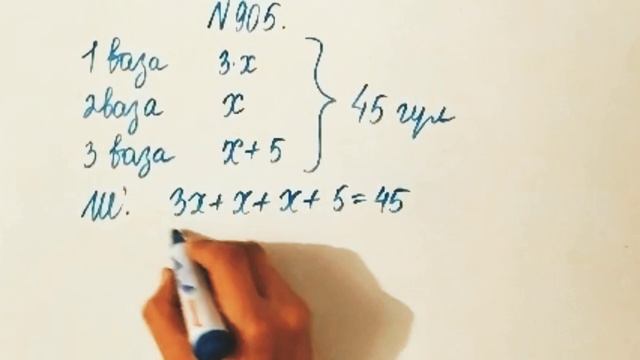 N 905.
1 ваза 3·x
2 ваза x
3 ваза x + 5
45 гүл
Ш: 3x + x + x + 5 = 45